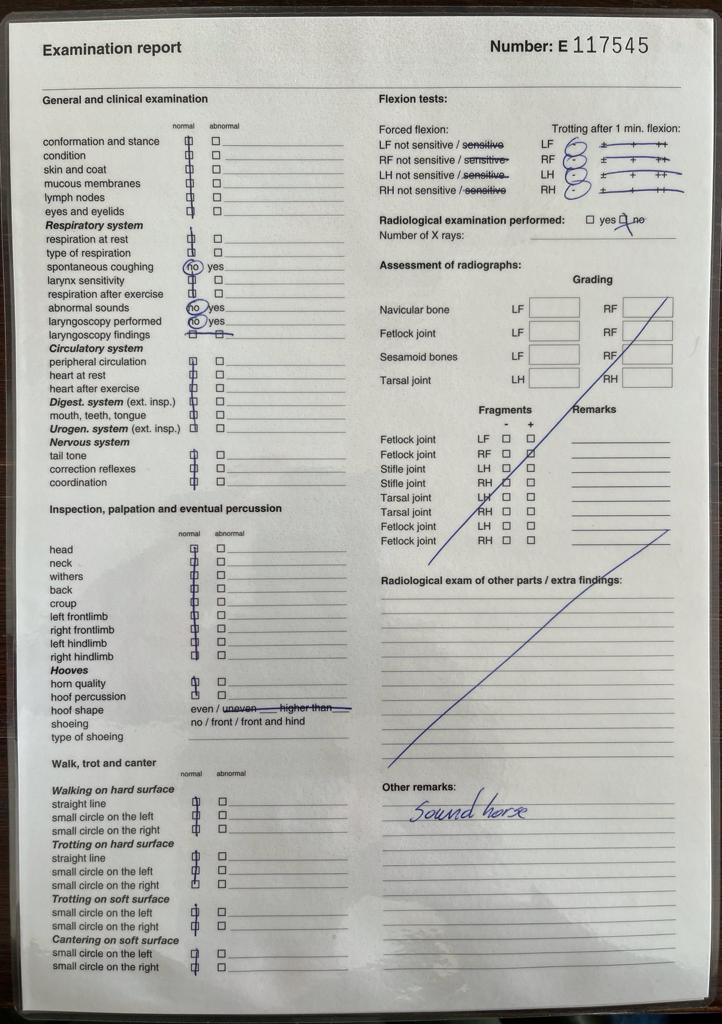 Examination report
Number: E 117545
General and clinical examination
normal abnormal
conformation and stance
condition
skin and coat
mucous membranes
lymph nodes
eyes and eyelids
Respiratory system
respiration at rest
type of respiration
spontaneous coughing no yes
larynx sensitivity
respiration after exercise
abnormal sounds no yes
laryngoscopy performed no yes
laryngoscopy findings
Circulatory system
peripheral circulation
heart at rest
heart after exercise
Digest. system (ext. insp.)
mouth, teeth, tongue
Urogen. system (ext. insp.)
Nervous system
tail tone
correction reflexes
coordination
Inspection, palpation and eventual percussion
normal abnormal
head
neck
withers
back
croup
left frontlimb
right frontlimb
left hindlimb
right hindlimb
Hooves
horn quality
hoof percussion
hoof shape even / uneven higher than
shoeing no / front / front and hind
type of shoeing
Walk, trot and canter
normal abnormal
Walking on hard surface
straight line
small circle on the left
small circle on the right
Trotting on hard surface
straight line
small circle on the left
small circle on the right
Trotting on soft surface
small circle on the left
small circle on the right
Cantering on soft surface
small circle on the left
small circle on the right
Flexion tests:
Forced flexion: Trotting after 1 min. flexion:
LF not sensitive / sensitive LF - ± + ++
RF not sensitive / sensitive RF - ± + ++
LH not sensitive / sensitive LH - ± + ++
RH not sensitive / sensitive RH - ± + ++
Radiological examination performed: yes no
Number of X rays:
Assessment of radiographs:
Grading
Navicular bone LF RF
Fetlock joint LF RF
Sesamoid bones LF RF
Tarsal joint LH RH
Fragments Remarks
- +
Fetlock joint LF
Fetlock joint RF
Stifle joint LH
Stifle joint RH
Tarsal joint LH
Tarsal joint RH
Fetlock joint LH
Fetlock joint RH
Radiological exam of other parts / extra findings:
Other remarks:
Sound horse